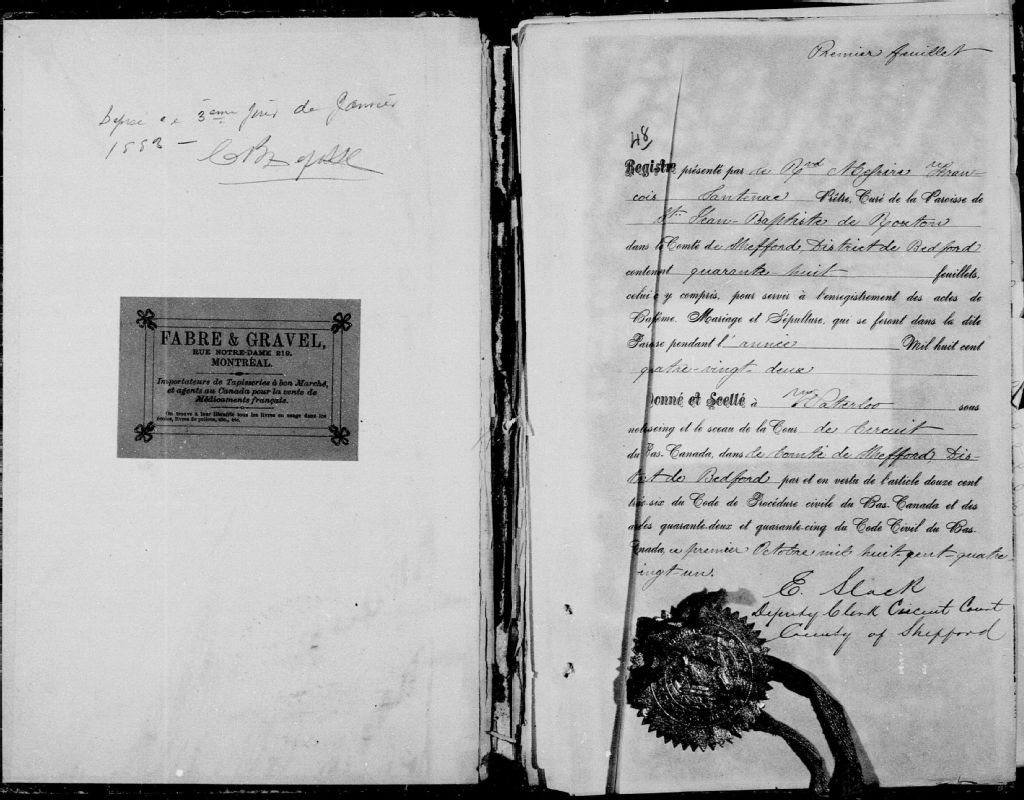 Déposé ce 3ème jour de Janvier
1883 —
FABRE & GRAVEL,
RUE NOTRE-DAME 219.
MONTRÉAL.
Importateurs de Tapisseries à bon Marché,
et agents au Canada pour la vente de
Médicaments français.
On trouve à leur librairie tous les livres en usage dans les
écoles, livres de prières, etc., etc.
Premier feuillet
48
Registre présenté par le Rvd Messire Fran-
cois Prêtre, Curé de la Paroisse de
St Jean-Baptiste de Roxton
dans le Comté de Shefford District de Bedford
contenant quarante-huit feuillets,
celui-ci y compris, pour servir à l'enregistrement des actes de
Baptême, Mariage et Sépulture, qui se feront dans la dite
Paroisse pendant l'année Mil huit cent
quatre-vingt deux
Donné et Scellé à Waterloo sous
notre seing et le sceau de la Cour de Circuit
du Bas-Canada, dans le Comté de Shefford, Dis-
trict de Bedford par et en vertu de l'article douze cent
trente-six du Code de Procédure civile du Bas-Canada et des
articles quarante-deux et quarante-cinq du Code Civil du Bas-
Canada, ce premier Octobre mil huit-cent-quatre
vingt-un.
E. Slack
Deputy Clerk Circuit Court
County of Shefford